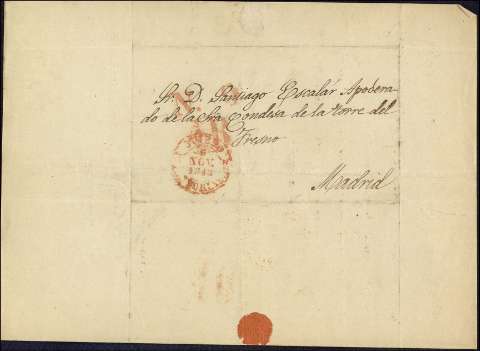 Sr. D. Santiago Escalár Apodera-
do de la Sra Condesa de la torre del
Fresno
Madrid
NOV.